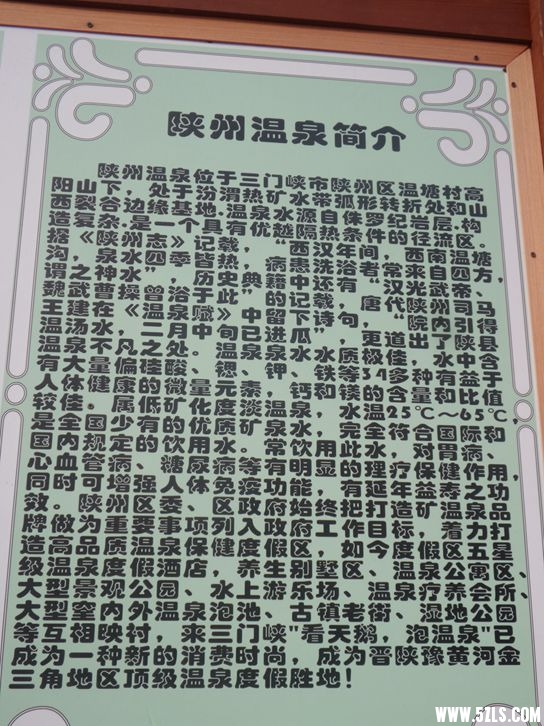 陕州温泉简介
陕州温泉位于三门峡市陕州区温塘村高
阳山下，处于汾渭热矿水带弧形转折处和山
西裂谷边缘基地.温泉水源自侏罗纪岩层.构
造复杂.是一个具有优越隔热条件的径流区。
据《陕州志》记载，“西汉年间，西南温塘，
沟，泉水四季皆热，病患洗浴者常来四方，
谓之神水”，历史典籍中还有“汉光武帝、
魏武曹操曾浴于此”的记载，唐代陕州司马
王建在《温泉赋》中留下诗句，“院内引得
温汤水，二月中旬已进瓜”，更道出了陕县
温泉不凡之处。温泉水水质极佳，水中含
有大量偏硅酸、锶、钾、铁等34多种有益于
人体健康的微量元素，钙和镁的含量和比值
较佳。属低矿化度淡温泉，水温25℃～65℃，
是全国少有的优质矿泉水，完全符合国际和
国内规定的饮用水。常饮用此水，对胃病、
心血管病、糖尿病等有明显的理疗保健作用，
同时可增强人体免疫功能，有延年益寿之功
效。陕州区委、区政府始终把打造矿温泉品
牌做为重要事项列入政府工作目标，着力打
造高品质温泉保健度假区，如今度假区五星
级温泉度假酒店，养生别墅区、温泉公寓区、
大型景观公园、水上游乐场、温泉疗养会所、
大型室内外温泉泡池、古镇老街、湿地公园
等互相映衬，来三门峡"看天鹅，泡温泉"已
成为一种新的消费时尚，成为晋陕豫黄河金
三角地区顶级温泉度假胜地！
WWW.52LS.COM